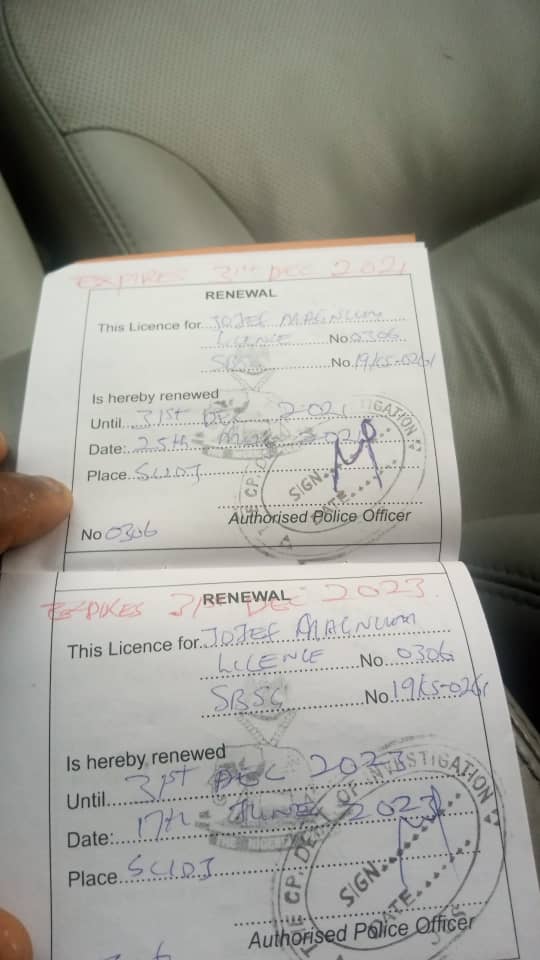 EXPIRES 31ST DEC 2021
RENEWAL
This Licence for JOJEF MAGNUM
LICENCE No 0306
SBSG No. 19/KS-0261
Is hereby renewed
Until 31st DEC 2021
Date: 25th 2021
Place SCIDJ
SIGN
DATE
Authorised Police Officer
No 0306
EXPIRES 31ST DEC 2023.
RENEWAL
This Licence for JOJEF MAGNUM
LICENCE No. 0306
SBSG No. 19/KS-0261
Is hereby renewed
Until 31st DEC 2023
Date: 17th JUNE 2023
Place SCIDJ
CP, OF INVESTIGATION
SIGN
DATE
Authorised Police Officer